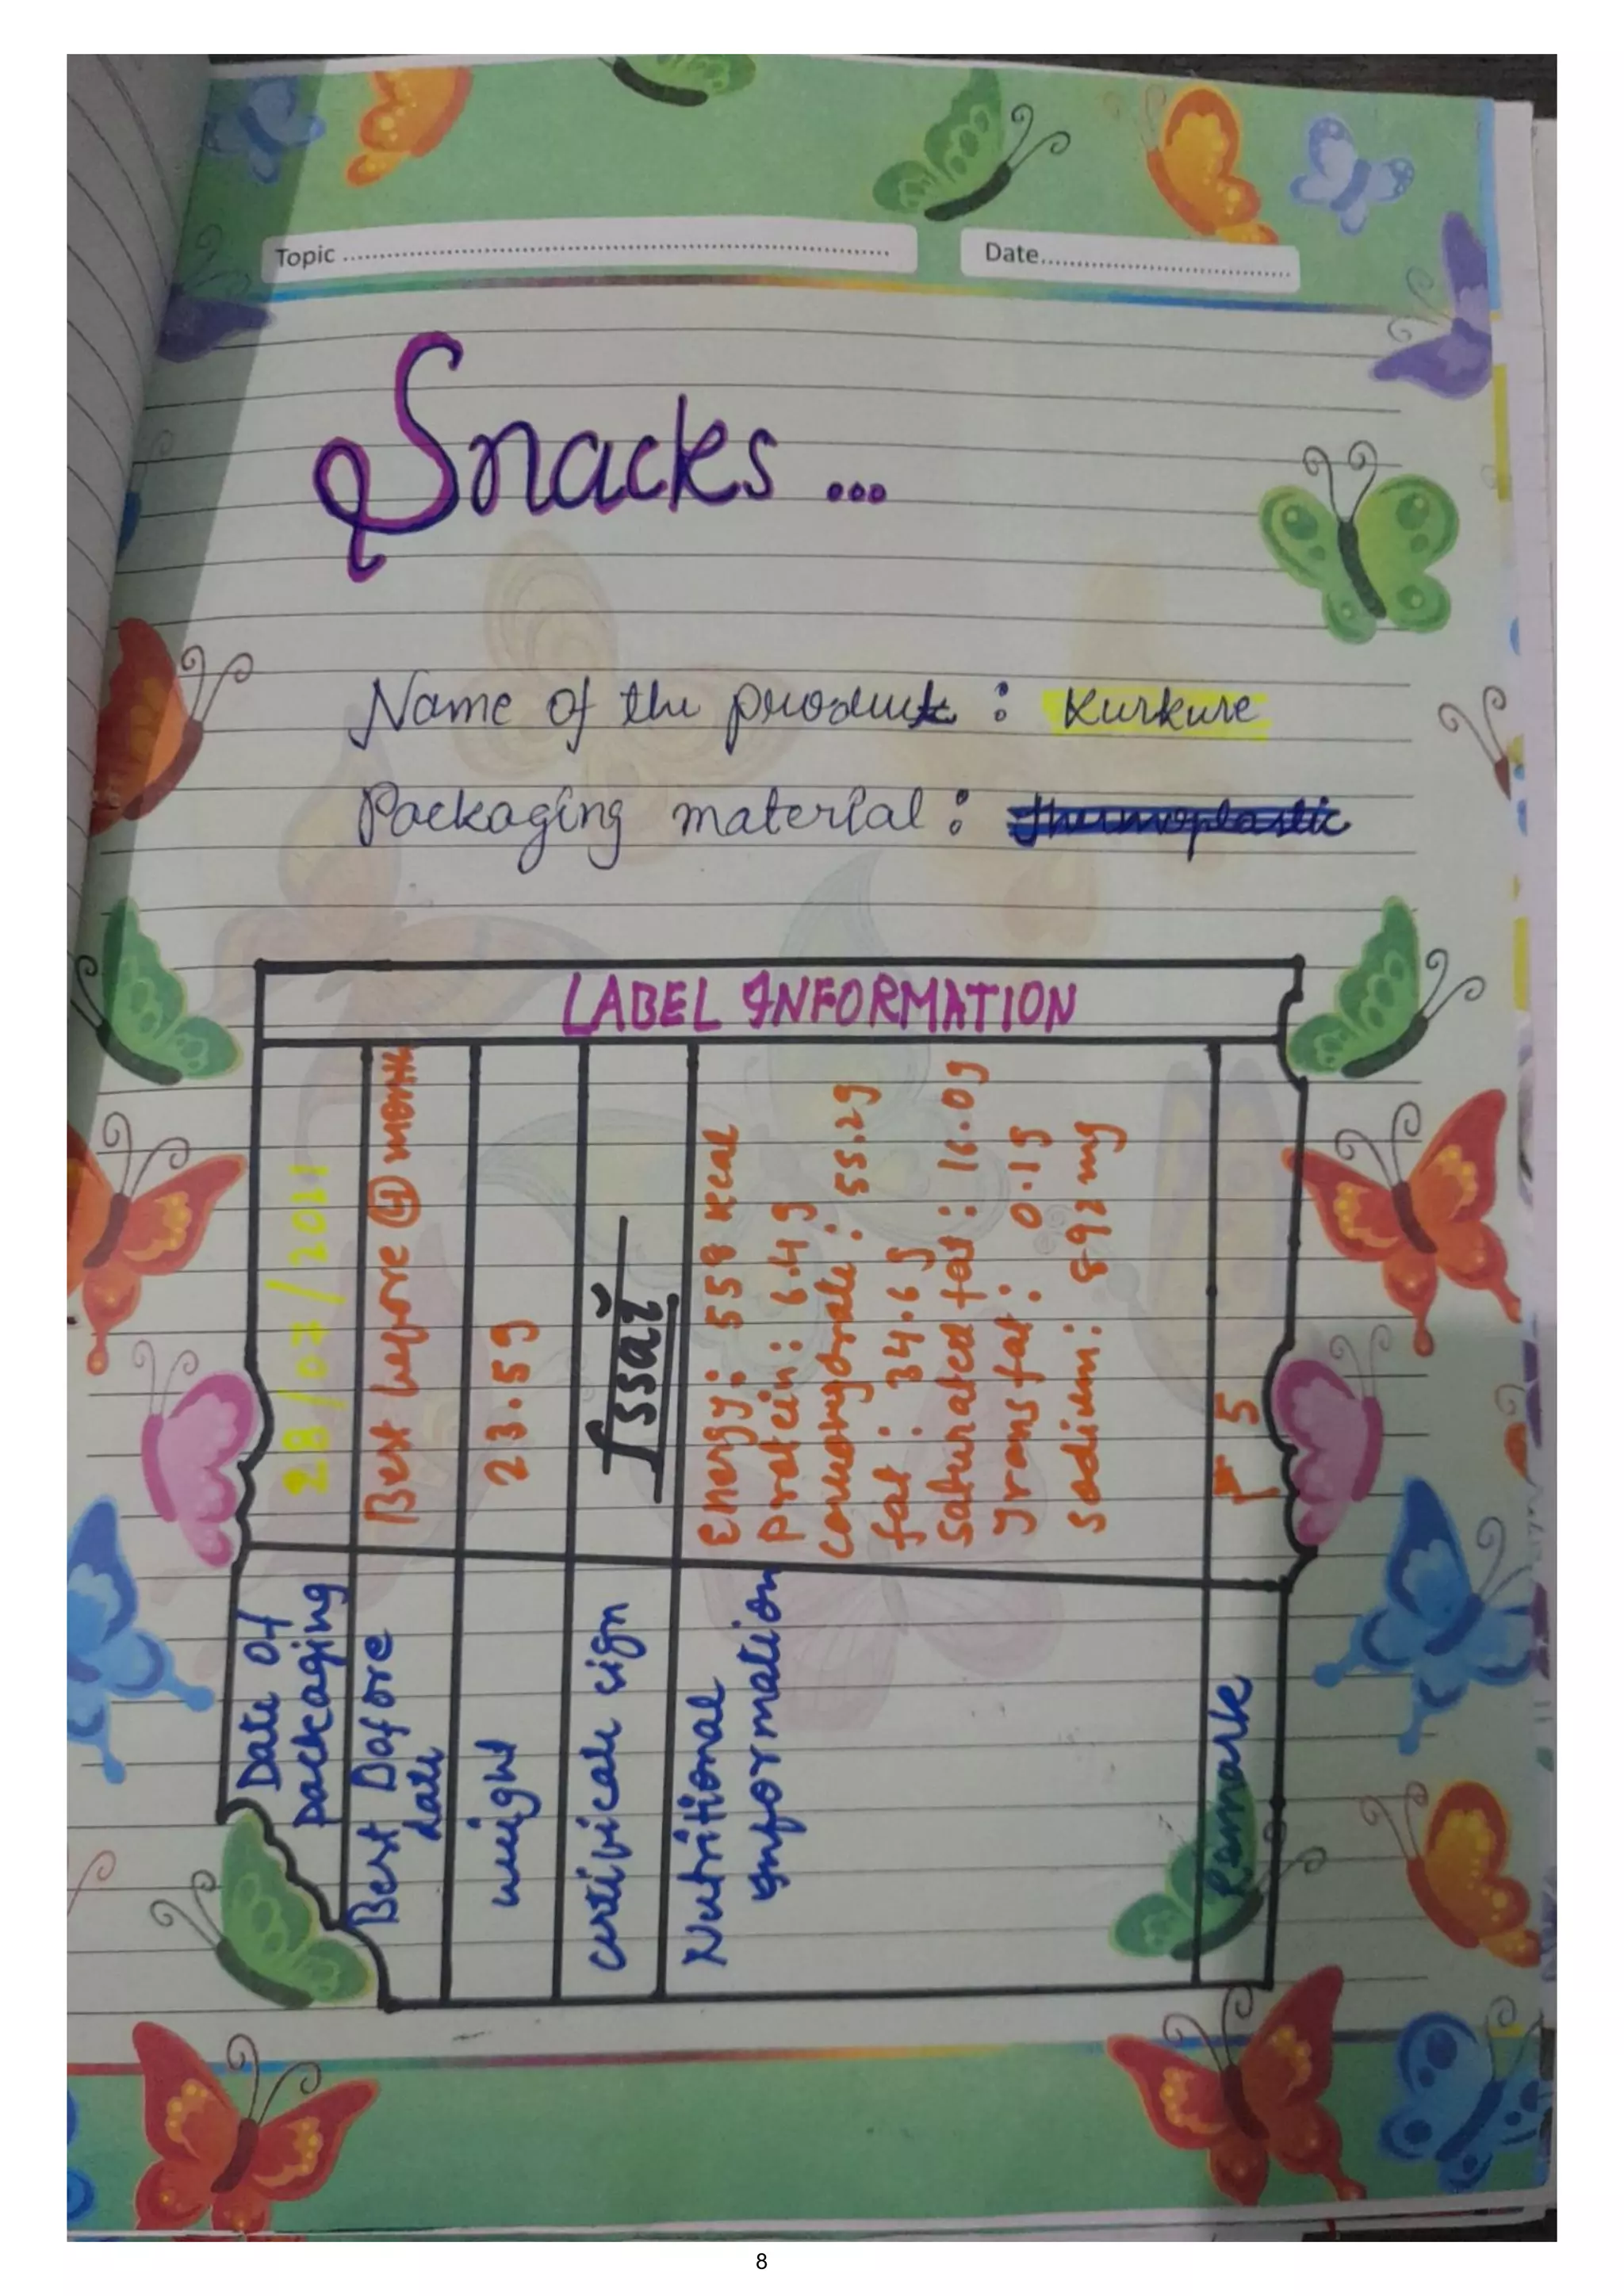 Topic
Date
Snacks ...
Name of the product : Kurkure
Packaging material : thermoplastic
LABEL INFORMATION
Date of packaging
28/07/2021
Best Before date
Best before 4 month
weight
23.5g
certificate sign
fssai
Nutritional Information
Energy: 558 Kcal
Protein: 6.4 g
fat: 34.6 g
Saturated fat: 16.0g
Trans fat: 0.1g
Sodium: 892 mg
Remark
₹ 5
8